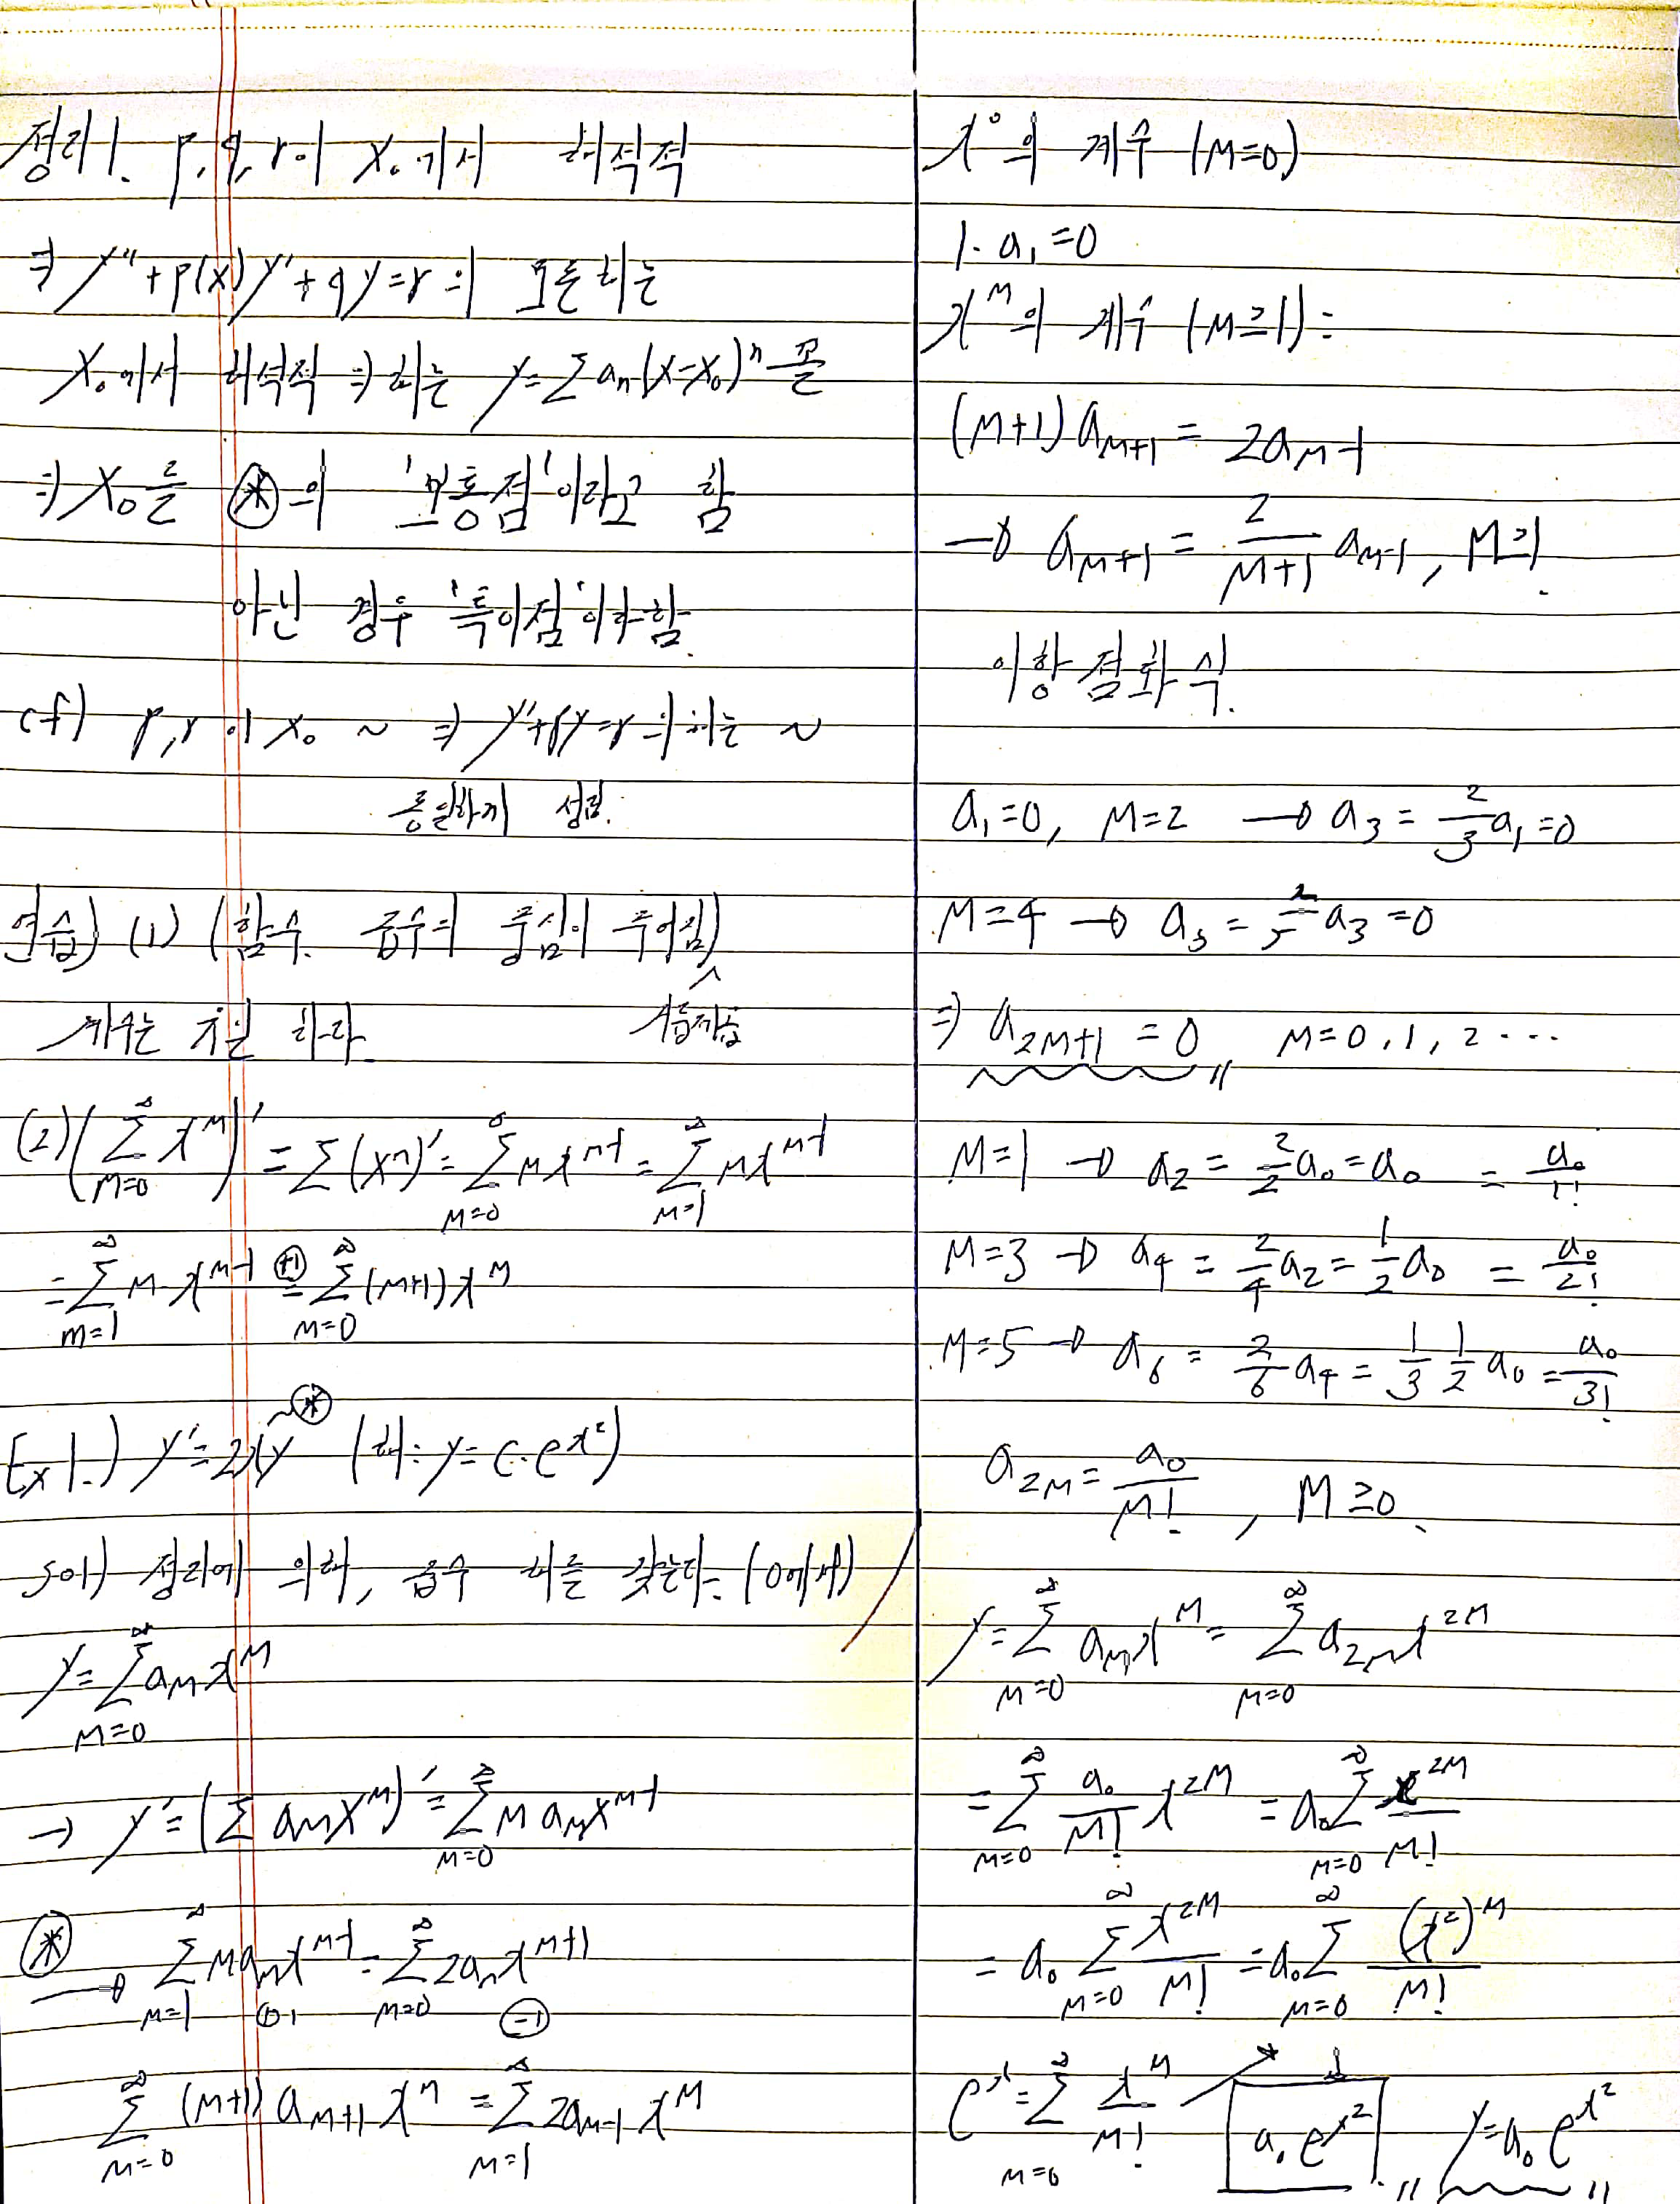 정리 1. p, q, r이 x₀에서 해석적
⇒ y″+p(x)y′+qy=r의 모든 해는
x₀에서 해석적 ⇒ 해는 y=Σaₙ(x-x₀)ⁿ 꼴
⇒ x₀를 ⊛의 '보통점'이라고 함
아닌 경우 '특이점'이라 함.
cf) p, r이 x₀ ~ ⇒ y′+py=r의 해는 ~
동일하게 성립.
연습) (1) (함수. 급수의 중심이 주어짐)
계수는 치환 하라
(2) (Σ_{m=0}^∞ x^m)′ = Σ(xⁿ)′ = Σ_{m=0}^∞ m x^{m-1} = Σ_{m=1}^∞ m x^{m-1}
= Σ_{m=1}^∞ m x^{m-1} =(+1) Σ_{m=0}^∞ (m+1)x^m
Ex 1.) y′=2xy ~⊛ (해: y=c·e^{x²})
sol) 정리에 의해, 급수 해를 갖는다. (0에서)
y=Σ_{m=0}^∞ a_m x^m
→ y′=(Σ a_m x^m)′=Σ_{m=0}^∞ m a_m x^{m-1}
⊛ → Σ_{m=1}^∞ m a_m x^{m-1} = Σ_{m=0}^∞ 2a_m x^{m+1}
⊖1
Σ_{m=0}^∞ (m+1) a_{m+1} x^m = Σ_{m=1}^∞ 2a_{m-1} x^m
x⁰의 계수 (m=0)
1·a₁=0
x^m의 계수 (m≥1):
(m+1)a_{m+1} = 2a_{m-1}
→ a_{m+1} = 2/(m+1) a_{m-1}, m≥1.
이항 점화식.
a₁=0, m=2 → a₃ = 2/3 a₁ = 0
m=4 → a₅ = 2/5 a₃ = 0
⇒ a_{2m+1} = 0 m=0, 1, 2 ···
m=1 → a₂ = 2/2 a₀ = a₀ = a₀/1!
m=3 → a₄ = 2/4 a₂ = 1/2 a₀ = a₀/2!
m=5 → a₆ = 2/6 a₄ = 1/3 1/2 a₀ = a₀/3!
a_{2m} = a₀/m! , m≥0.
y=Σ_{m=0}^∞ a_m x^m = Σ_{m=0}^∞ a_{2m} x^{2m}
= Σ_{m=0}^∞ a₀/m! x^{2m} = a₀ Σ_{m=0}^∞ x^{2m}/m!
= a₀ Σ_{m=0}^∞ x^{2m}/m! = a₀ Σ_{m=0}^∞ (x²)^m/m!
e^x = Σ_{m=0}^∞ x^m/m! a₀ e^{x²} y=a₀ e^{x²}